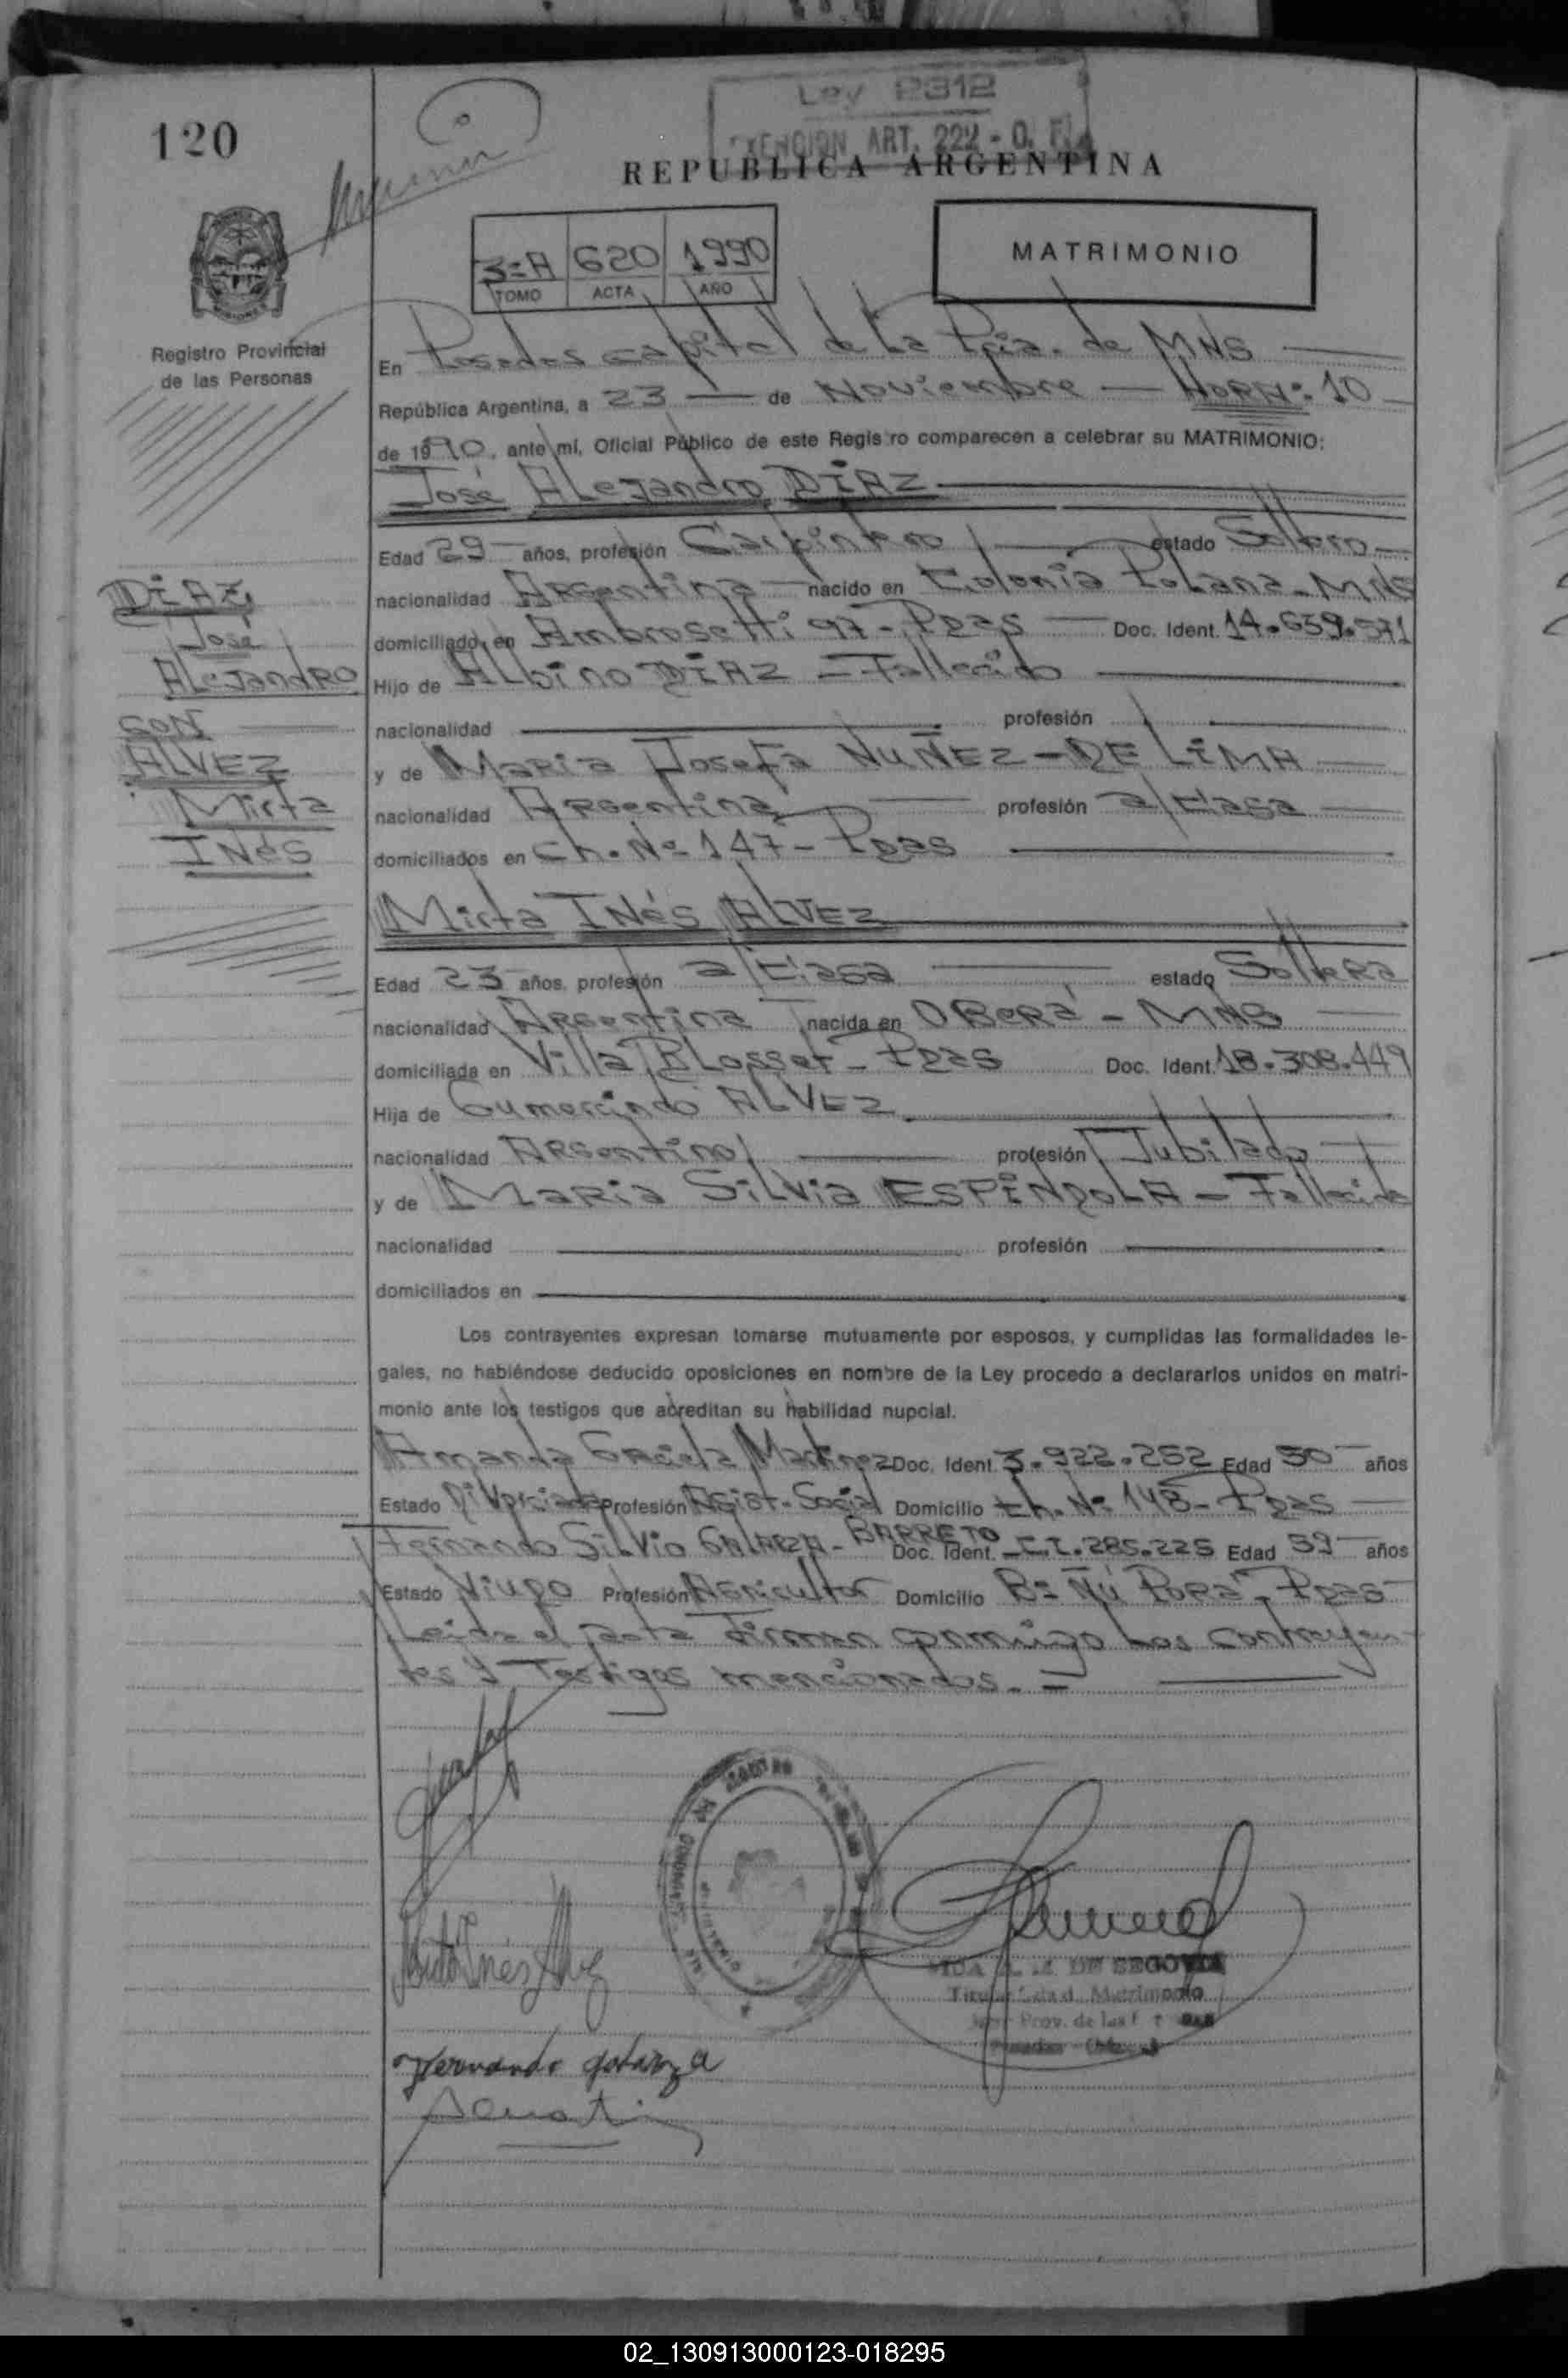 Ley 2312
EXENCION ART. 222 - O. F.
120
REPUBLICA ARGENTINA
3=A 620 1990
TOMO ACTA AÑO
MATRIMONIO
Registro Provincial
de las Personas
En Posadas capital de La Pcia. de MNS
República Argentina, a 23 de Noviembre HORA: 10
de 1990, ante mí, Oficial Público de este Registro comparecen a celebrar su MATRIMONIO:
José ALeJandro DÍAZ
Edad 29 años, profesión Carpintero estado Soltero
nacionalidad Argentina nacido en Colonia Polana - MNS
domiciliado en Ambrosetti 97 - Pdas Doc. Ident. 14.639.971
Hijo de ALbino DÍAZ - Fallecido
nacionalidad profesión
y de Maria Josefa NUÑEZ - DE LIMA
nacionalidad Argentina profesión a/casa
domiciliados en Ch. Nº 147 - Pdas
DÍAZ
José
ALeJandRO
CON
ALVEZ
Mirta
INéS
Mirta INéS ALVEZ
Edad 23 años, profesión a/casa estado Soltera
nacionalidad Argentina nacida en OBeRá - MNS
domiciliada en Villa BLosset - Pdas Doc. Ident. 18.308.449
Hija de Gumercindo ALVEZ
nacionalidad Argentino profesión Jubilado
y de Maria SiLVia ESPÍNDOLA - Fallecida
nacionalidad profesión
domiciliados en
Los contrayentes expresan tomarse mutuamente por esposos, y cumplidas las formalidades le-
gales, no habiéndose deducido oposiciones en nombre de la Ley procedo a declararlos unidos en matri-
monio ante los testigos que acreditan su habilidad nupcial.
Amanda Graciela Martinez Doc. Ident. 3.922.252 Edad 50 años
Estado Divorciada Profesión Asist. Social Domicilio Ch. Nº 148 - Pdas
Fernando SiLVio GALARZA - BARRETO Doc. Ident. C.I. 285.225 Edad 59 años
Estado Viudo Profesión Agricultor Domicilio Bº Ñú Porá - Pdas
Leida el acta Firman conmigo Los contrayen
tes y Testigos mencionados. =
Mirta Inés Alvez
DE SEGOVIA
Titular Matrimonio
Prov. de las
Posadas
Fernando galarza
02_130913000123-018295